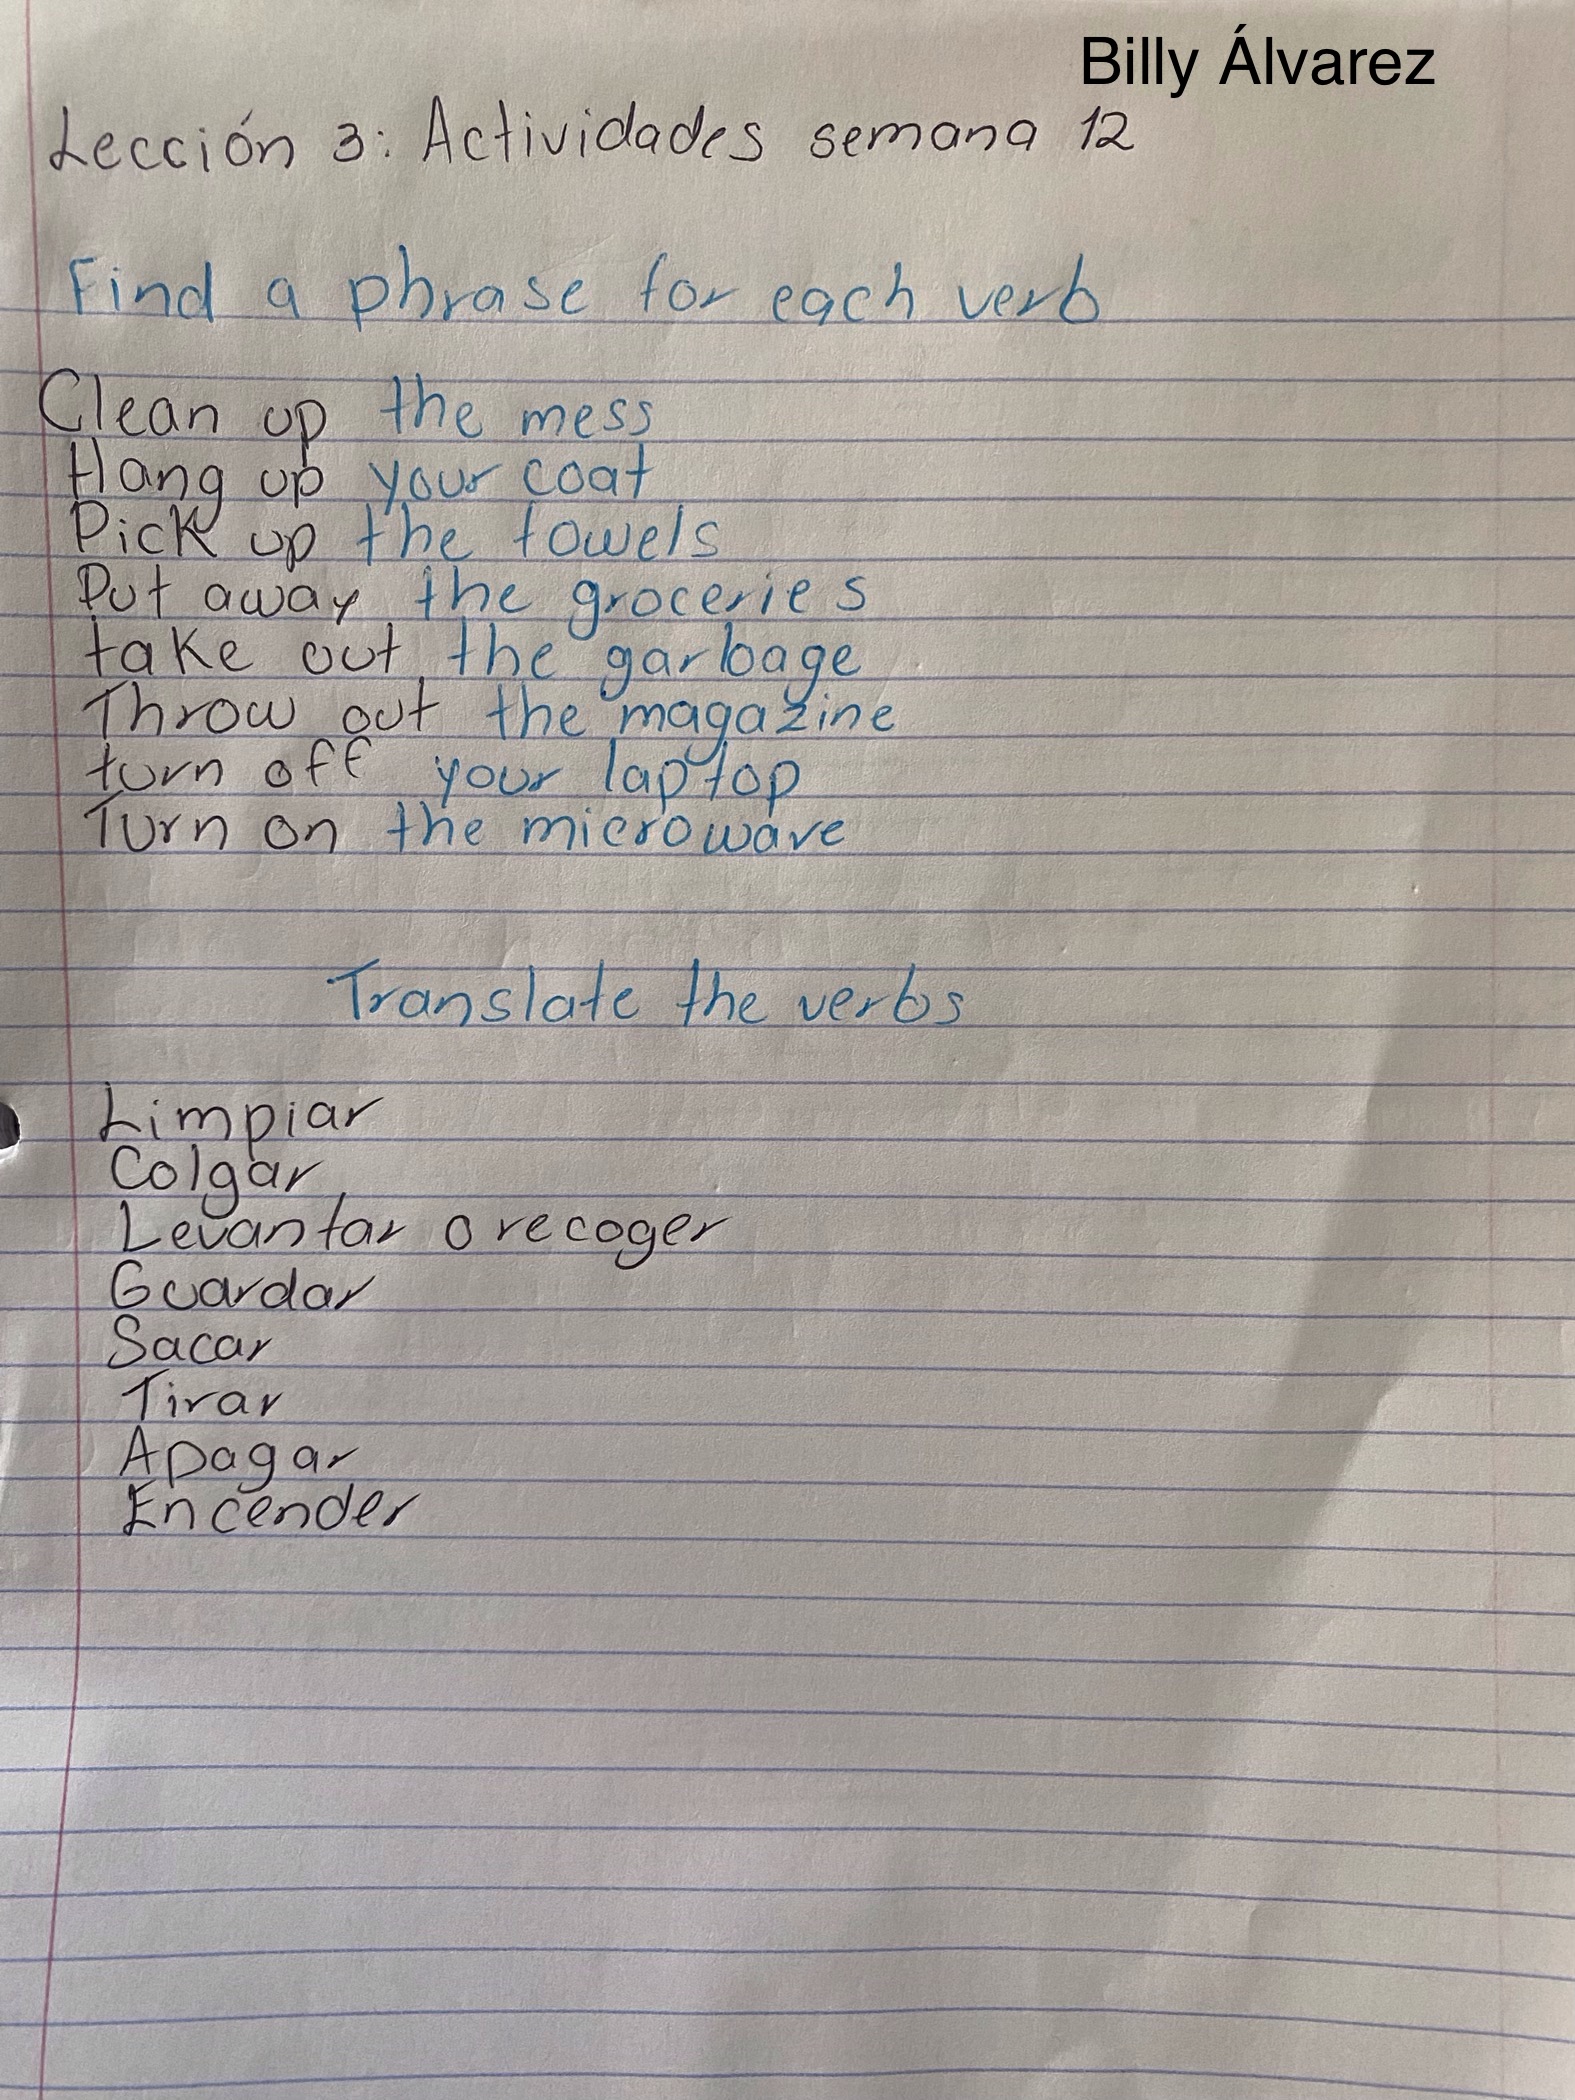 Billy Álvarez
Lección 3: Actividades semana 12
Find a phrase for each verb
Clean up the mess
Hang up your coat
Pick up the towels
Put away the groceries
take out the garbage
Throw out the magazine
turn off your laptop
Turn on the microwave
Translate the verbs
Limpiar
Colgar
Levantar o recoger
Guardar
Sacar
Tirar
Apagar
Encender